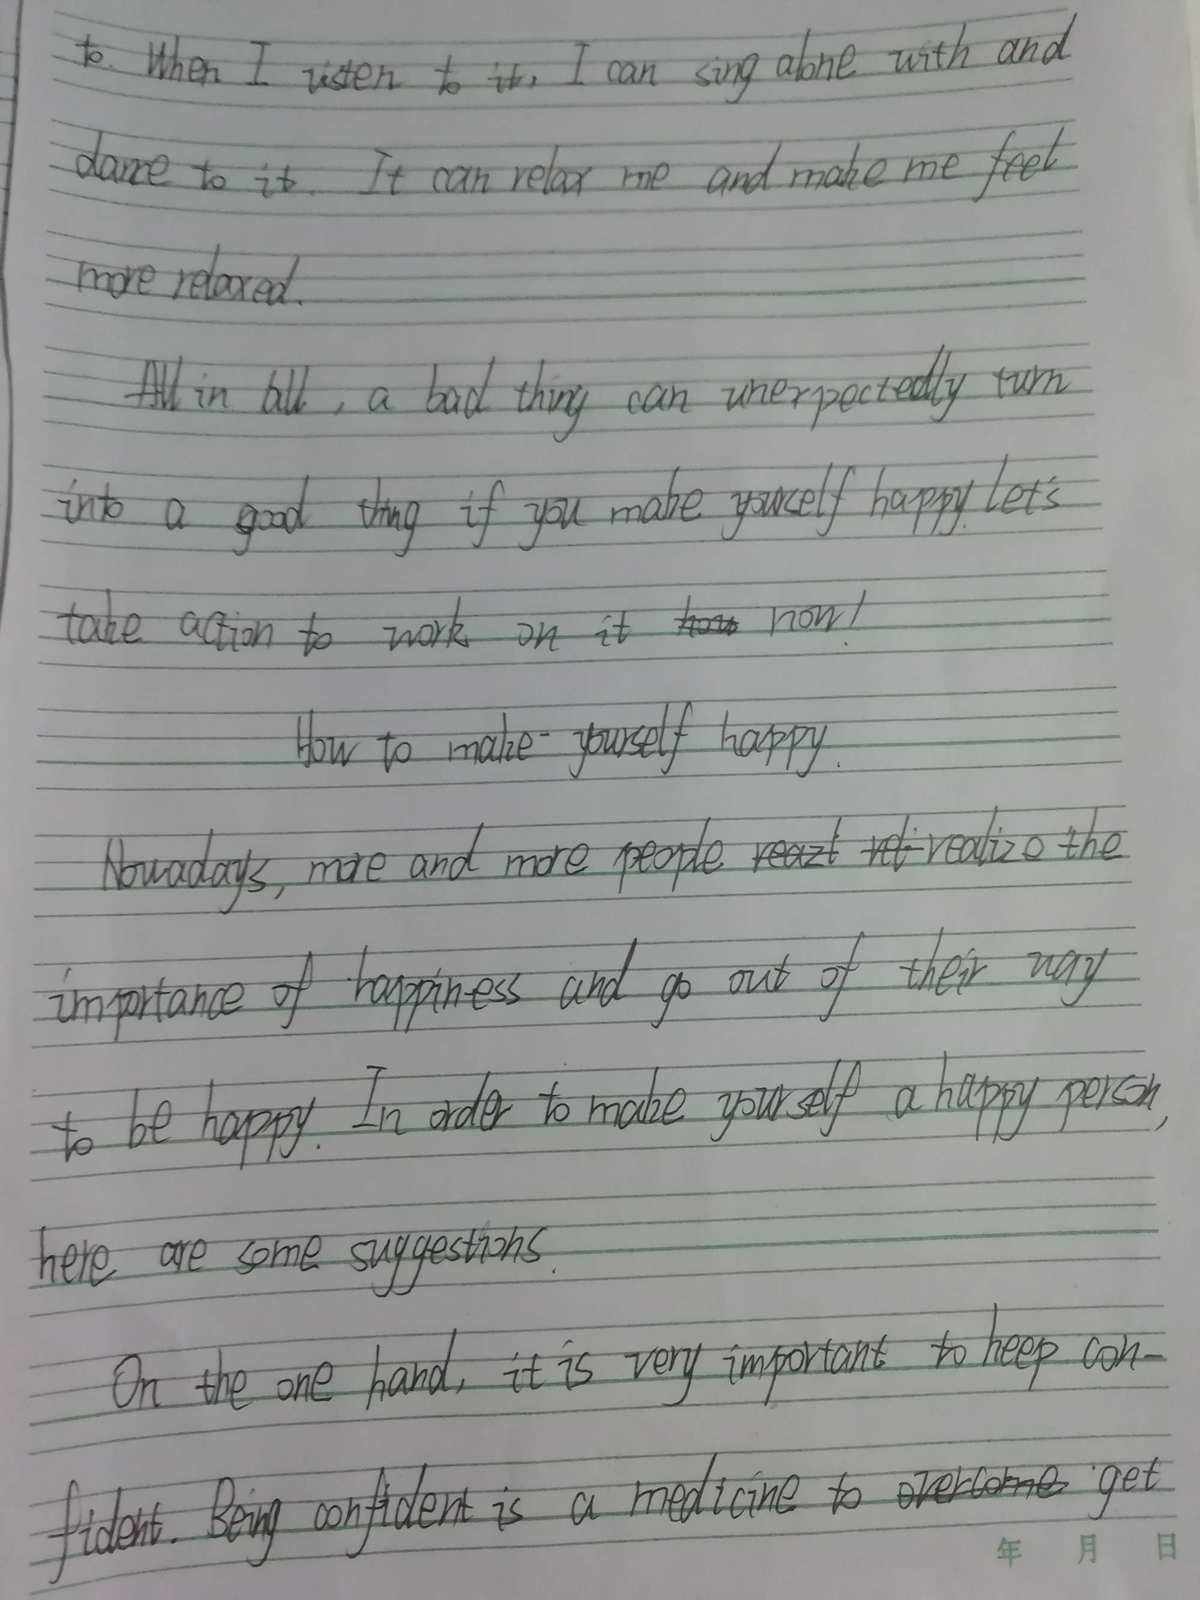 to. When I listen to it, I can sing alone with and
dance to it. It can relax me and make me feel
more relaxed.
All in all, a bad thing can unexpectedly turn
into a good thing if you make yourself happy. Let's
take action to work on it how now!
How to make yourself happy.
Nowadays, more and more people reazt ret realize the
importance of happiness and go out of their way
to be happy. In order to make yourself a happy person,
here are some suggestions.
On the one hand, it is very important to keep con-
fident. Being confident is a medicine to overcome get
年 月 日